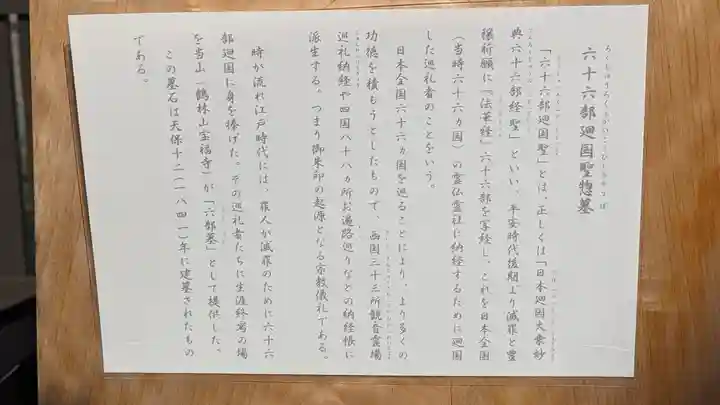 六十六部廻国聖惣墓
「六十六部廻国聖」とは、正しくは「日本廻国大乗妙
典六十六部経聖」といい、平安時代後期より滅罪と豊
穣祈願に『法華経』六十六部を写経し、これを日本全国
(当時六十六ヵ国)の霊仏霊社に納経するために廻国
した巡礼者のことをいう。
日本全国六十六ヵ国を巡ることにより、より多くの
功徳を積もうとしたもので、西国三十三所観音霊場
巡礼納経や四国八十八ヵ所お遍路巡りなどの納経帳に
派生する。つまり御朱印の起源となる宗教儀礼である。
時が流れ江戸時代には、罪人が滅罪のために六十六
部廻国に身を捧げた。その巡礼者たちに生涯終焉の場
を当山「鶴林山宝福寺」が「六部墓」として提供した。
この墓石は天保十二(一八四一)年に建墓されたもの
である。